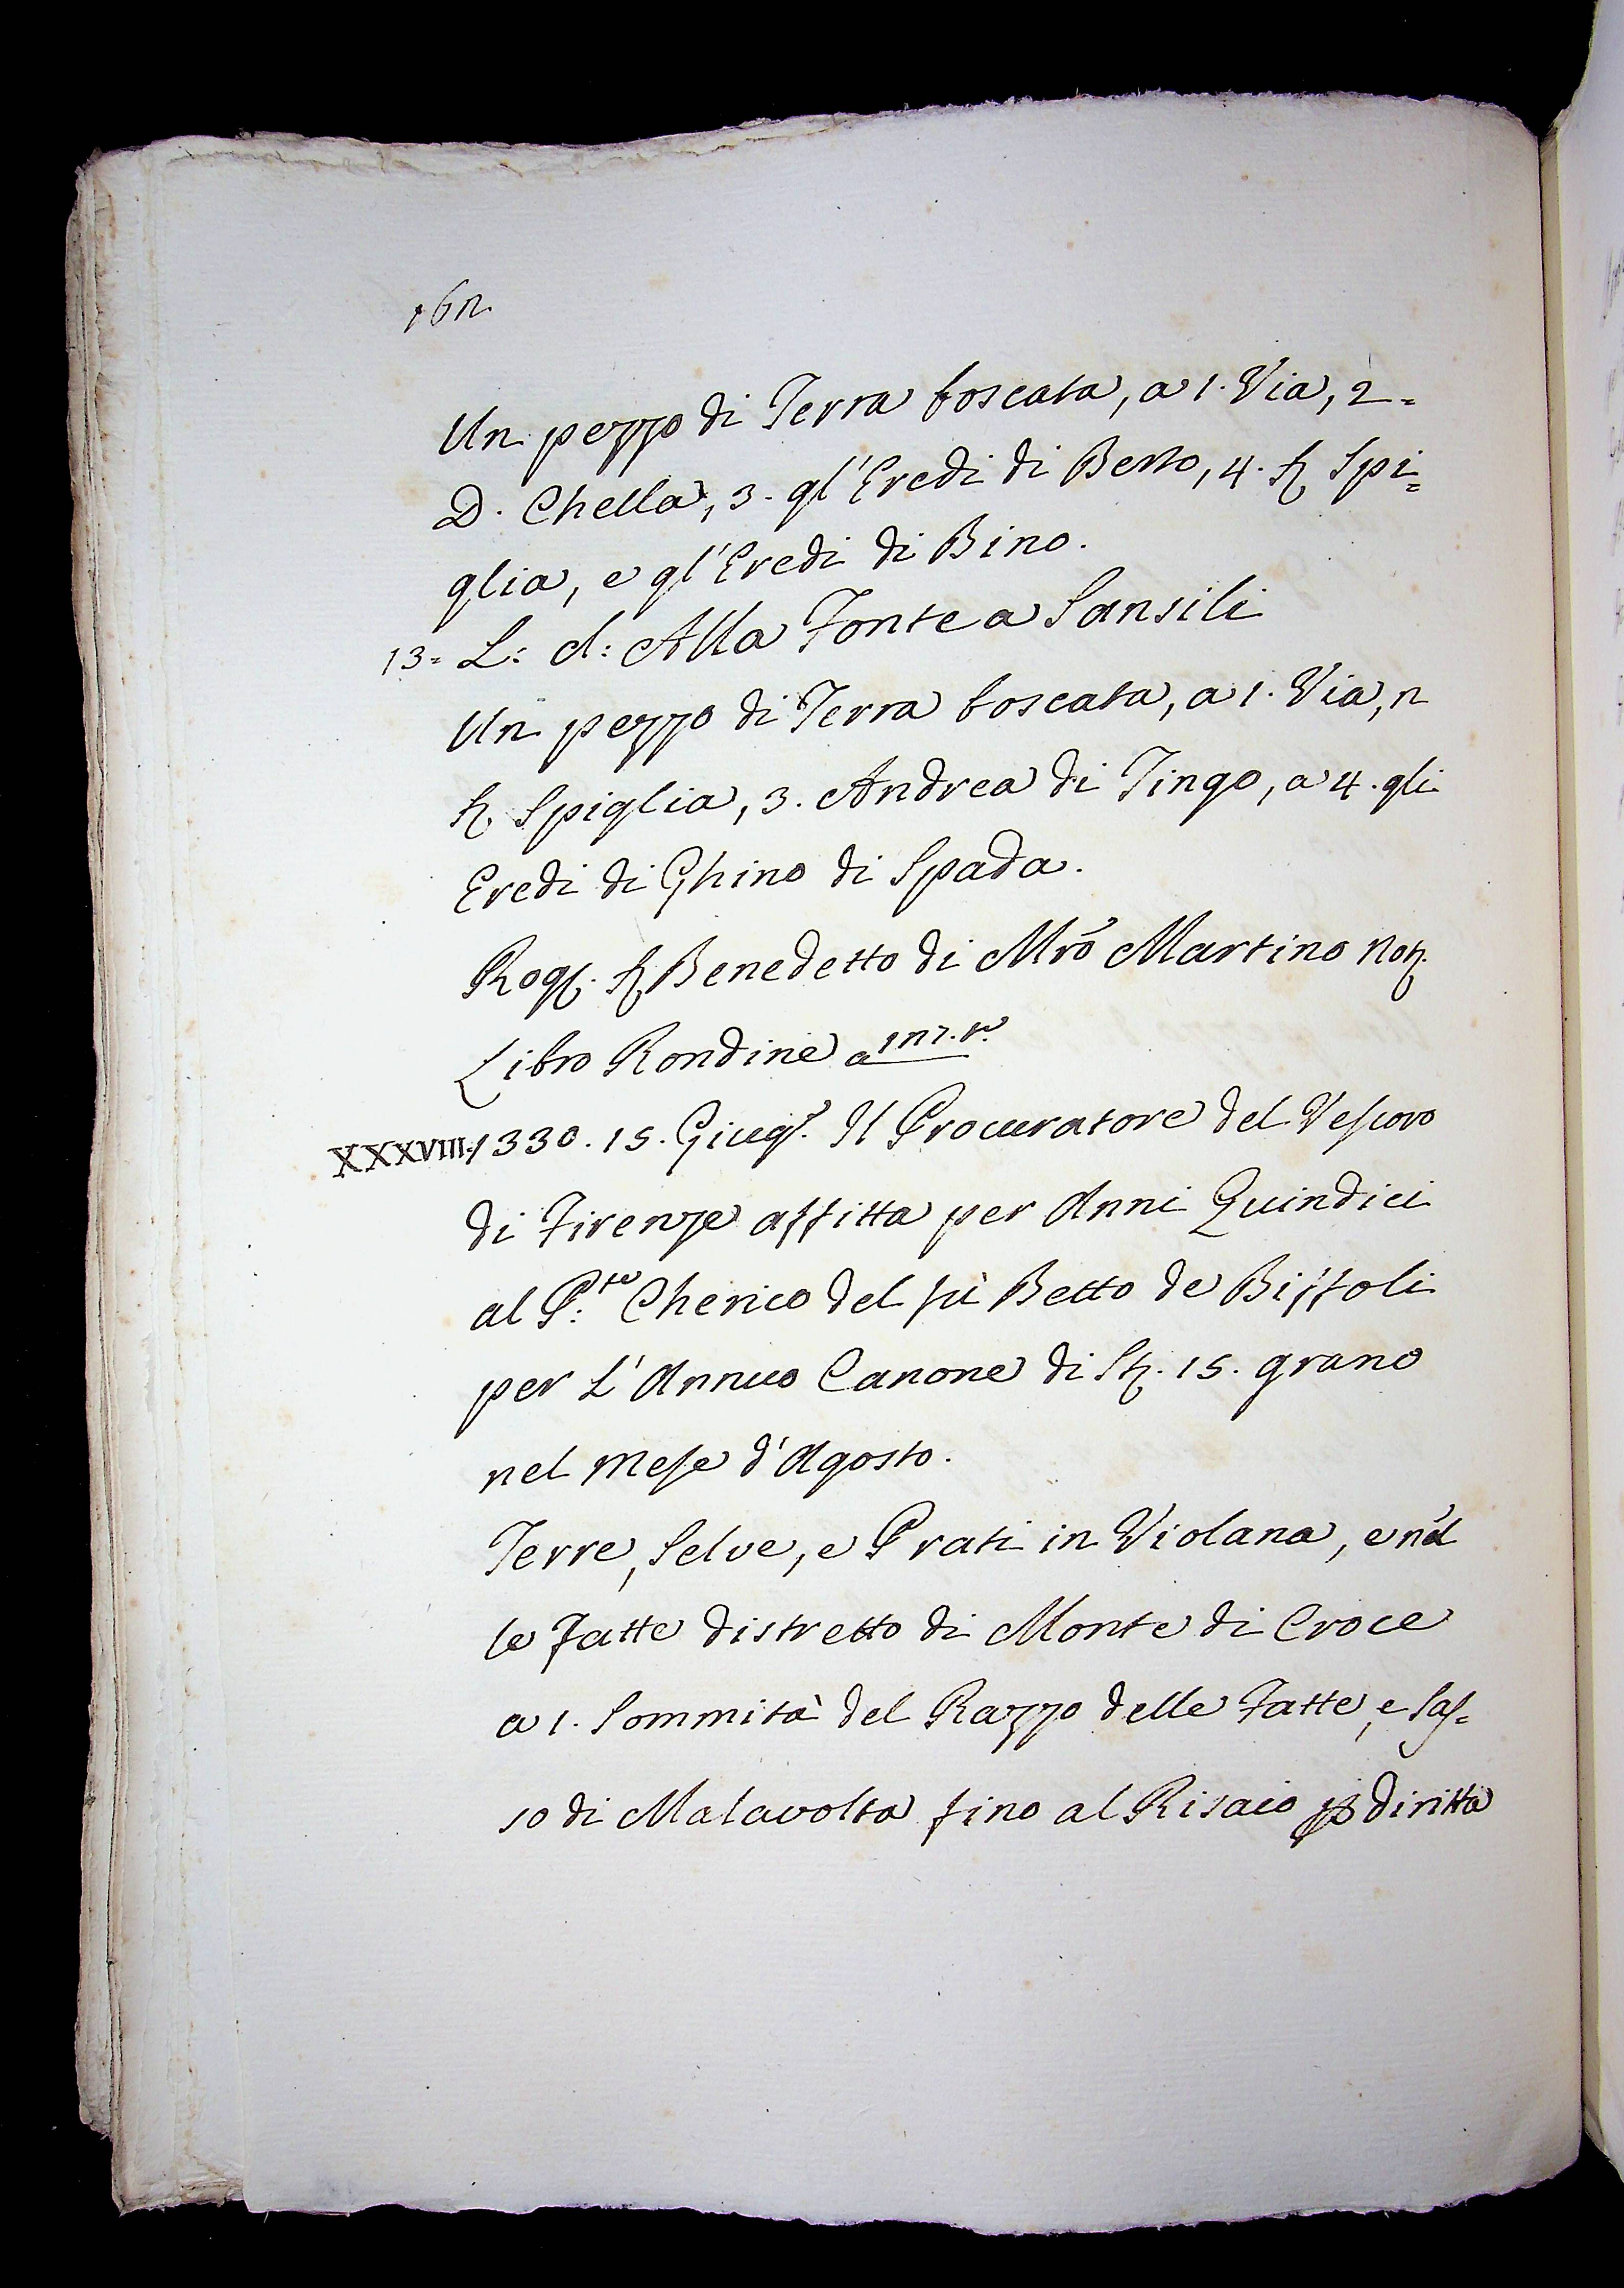 162
Un pezzo di Terra boscata, a 1. Via, 2=
D. Chella, 3. gl'Eredi di Berto, 4. Sr Spi=
glia, e gl'Eredi di Bino.
13= L: d: Alla Fonte a Sansili
Un pezzo di Terra boscata, a 1. Via, 2
Sr Spiglia, 3. Andrea di Tingo, a 4. gli
Eredi di Ghino di Spada.
Rog. Sr Benedetto di Mrõ Martino Not.
Libro Rondine a 127. r.
XXXVIII. 1330. 15. Giug. Il Procuratore del Vescovo
di Firenze affitta per Anni Quindici
al P.te Cherico del fù Betto de Biffoli
per L'Annuo Canone di St. 15. grano
nel Mese d'Agosto.
Terre, Selve, e Prati in Violana, e nel
le Fatte distretto di Monte di Croce
a 1. Sommità del Razzo delle Fatte, e Sas=
so di Malavolta fino al Risaio p diritta